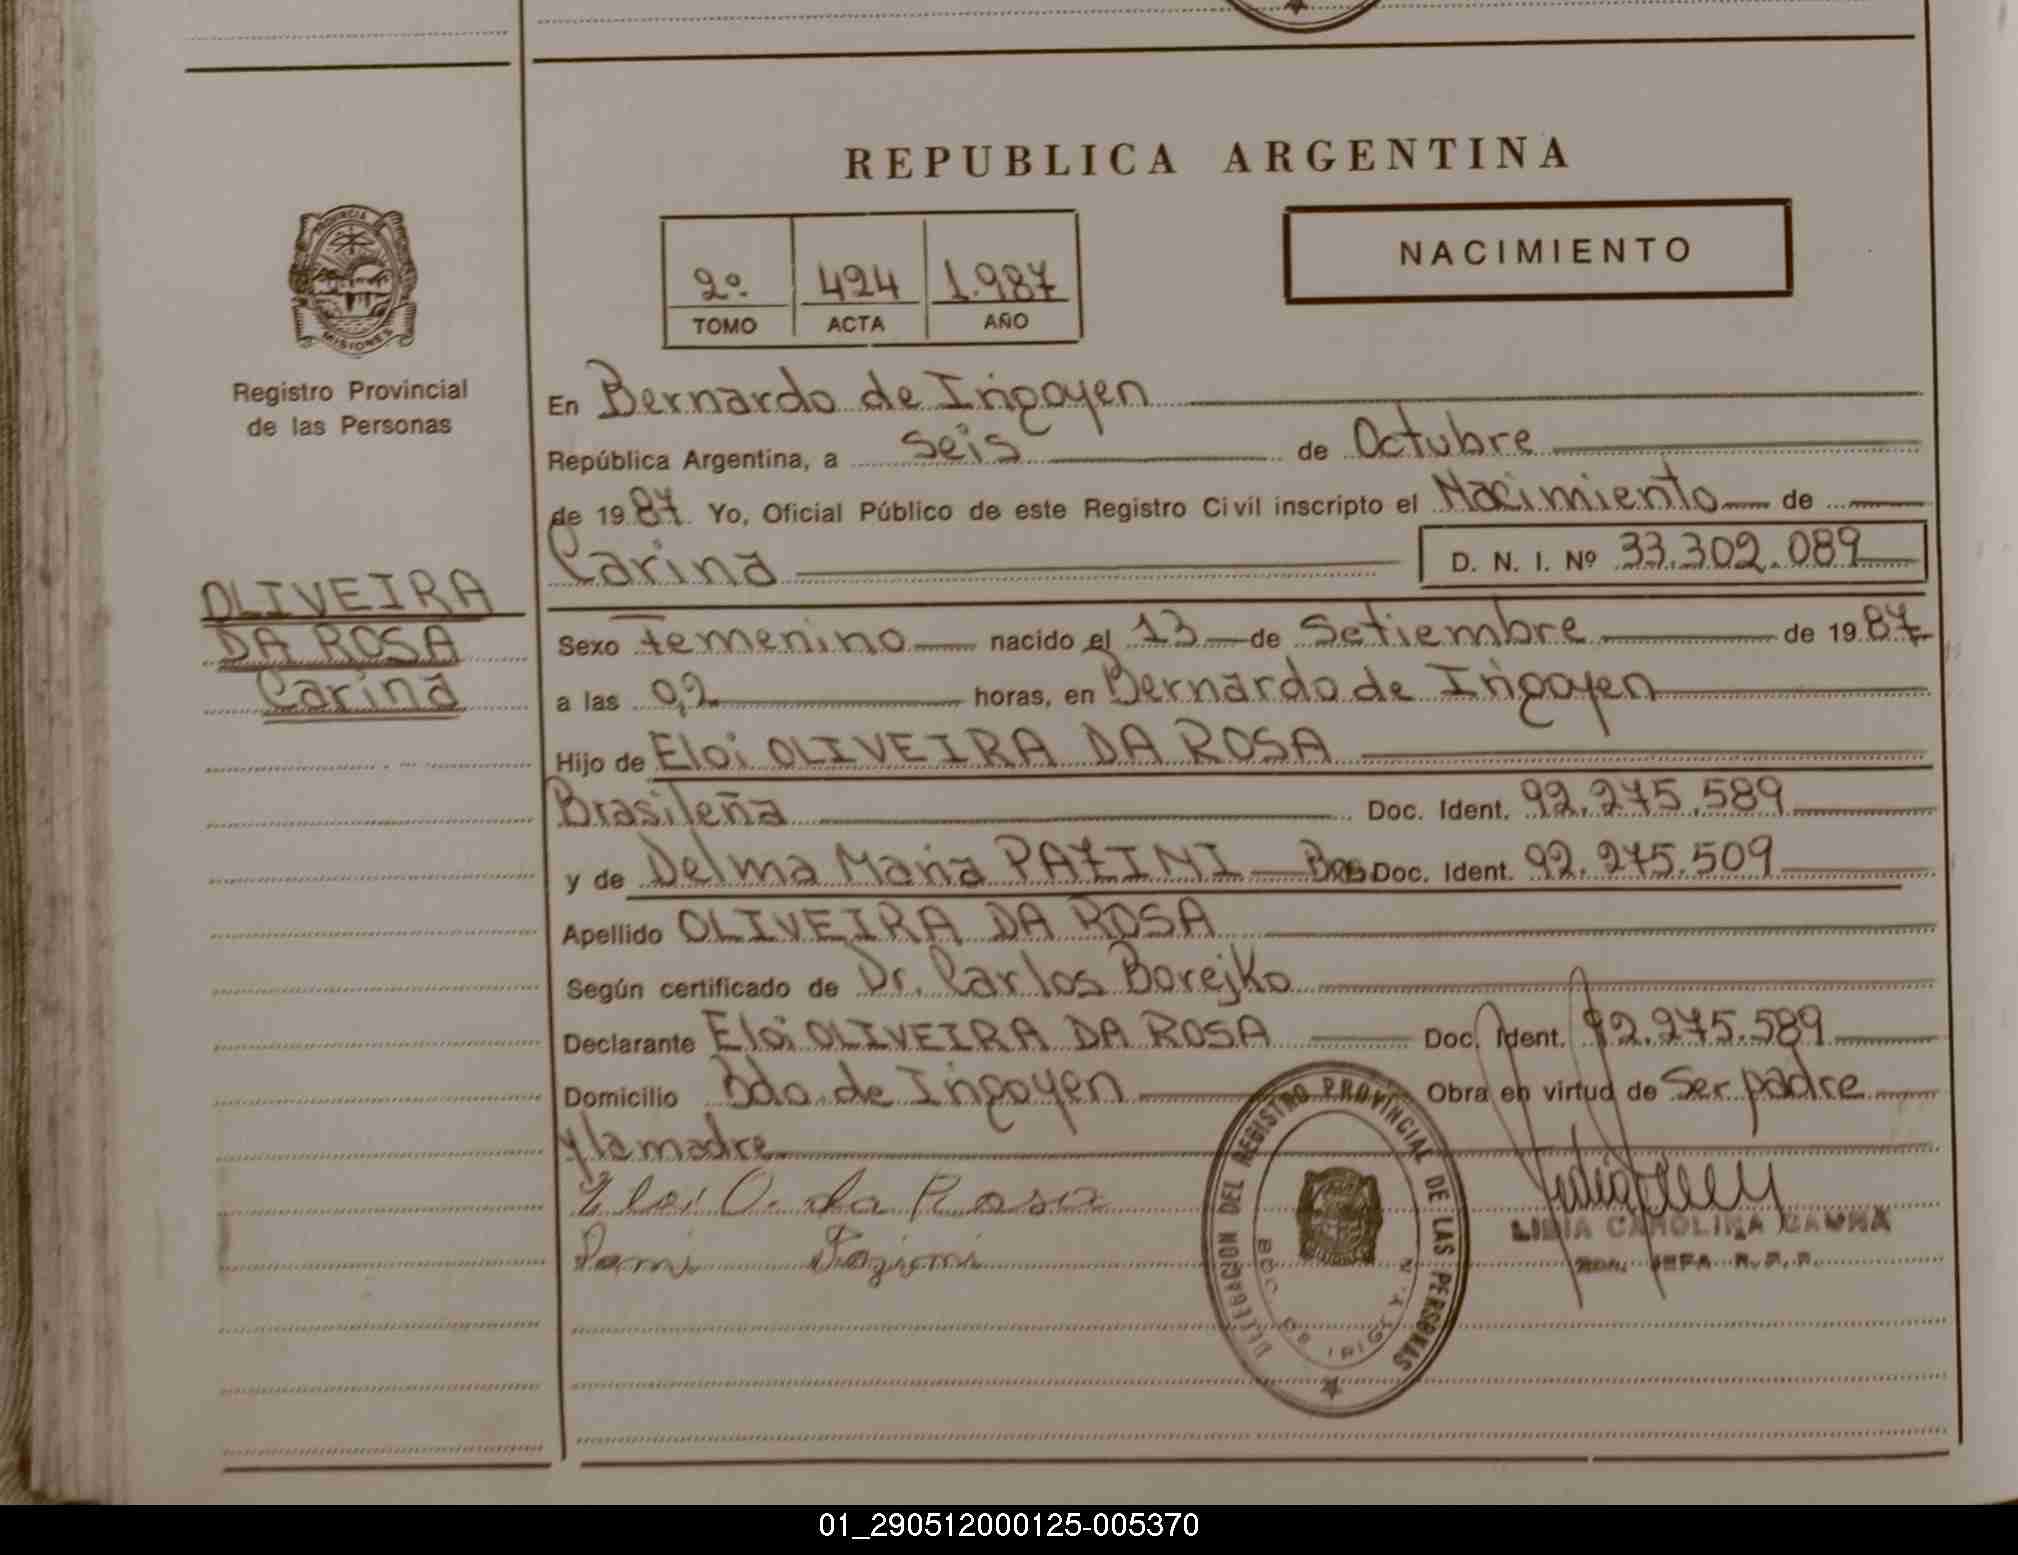 REPUBLICA ARGENTINA
PROVINCIA
MISIONES
Registro Provincial
de las Personas
2º. 424 1.987
TOMO ACTA AÑO
NACIMIENTO
En Bernardo de Irigoyen
República Argentina, a seis de Octubre
de 1987. Yo, Oficial Público de este Registro Civil inscripto el Nacimiento de
Carina D. N. I. Nº 33.302.089
OLIVEIRA
DA ROSA
Carina
Sexo Femenino nacido el 13 de Setiembre de 1987
a las 0,2 horas, en Bernardo de Irigoyen
Hijo de Eloi OLIVEIRA DA ROSA
Brasileña Doc. Ident. 92.275.589
y de Delma Maria PAZINI Bras Doc. Ident. 92.275.509
Apellido OLIVEIRA DA ROSA
Según certificado de Dr. Carlos Borejko
Declarante Eloi OLIVEIRA DA ROSA Doc. Ident. 92.275.589
Domicilio Bdo. de Irigoyen Obra en virtud de Ser padre
y la madre
Eloi O. da Rosa
Pazini
DELEGACION DEL REGISTRO PROVINCIAL DE LAS PERSONAS
BDO. DE IRIGOY
LIDIA CAROLINA
JEFA R.P.P.
01_290512000125-005370